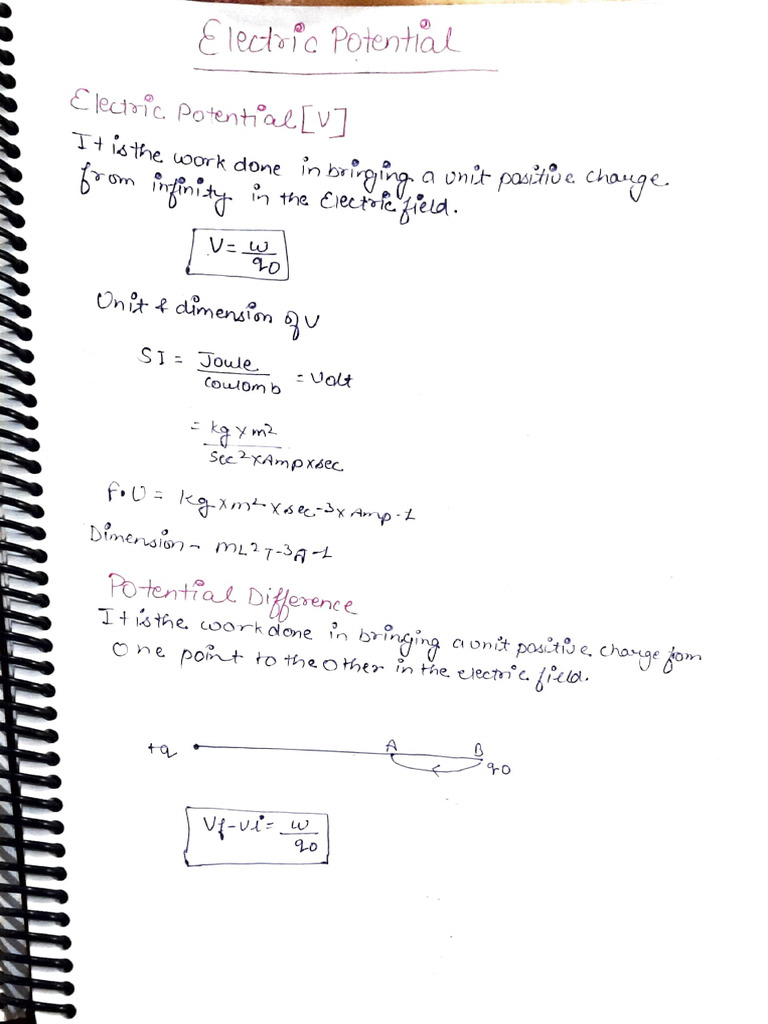 Electric Potential
Electric Potential [V]
It is the work done in bringing a unit positive charge
from infinity in the Electric field.
V = w/q0
Unit & dimension of V
SI = Joule/coulomb = Volt
= kg x m2/sec2 x Amp x sec
F.U = kg x m2 x sec-3 x Amp-1
Dimension - ML2T-3A-1
Potential Difference
It is the work done in bringing a unit positive charge from
one point to the other in the electric field.
+q A B
q0
Vf - Vi = w/q0